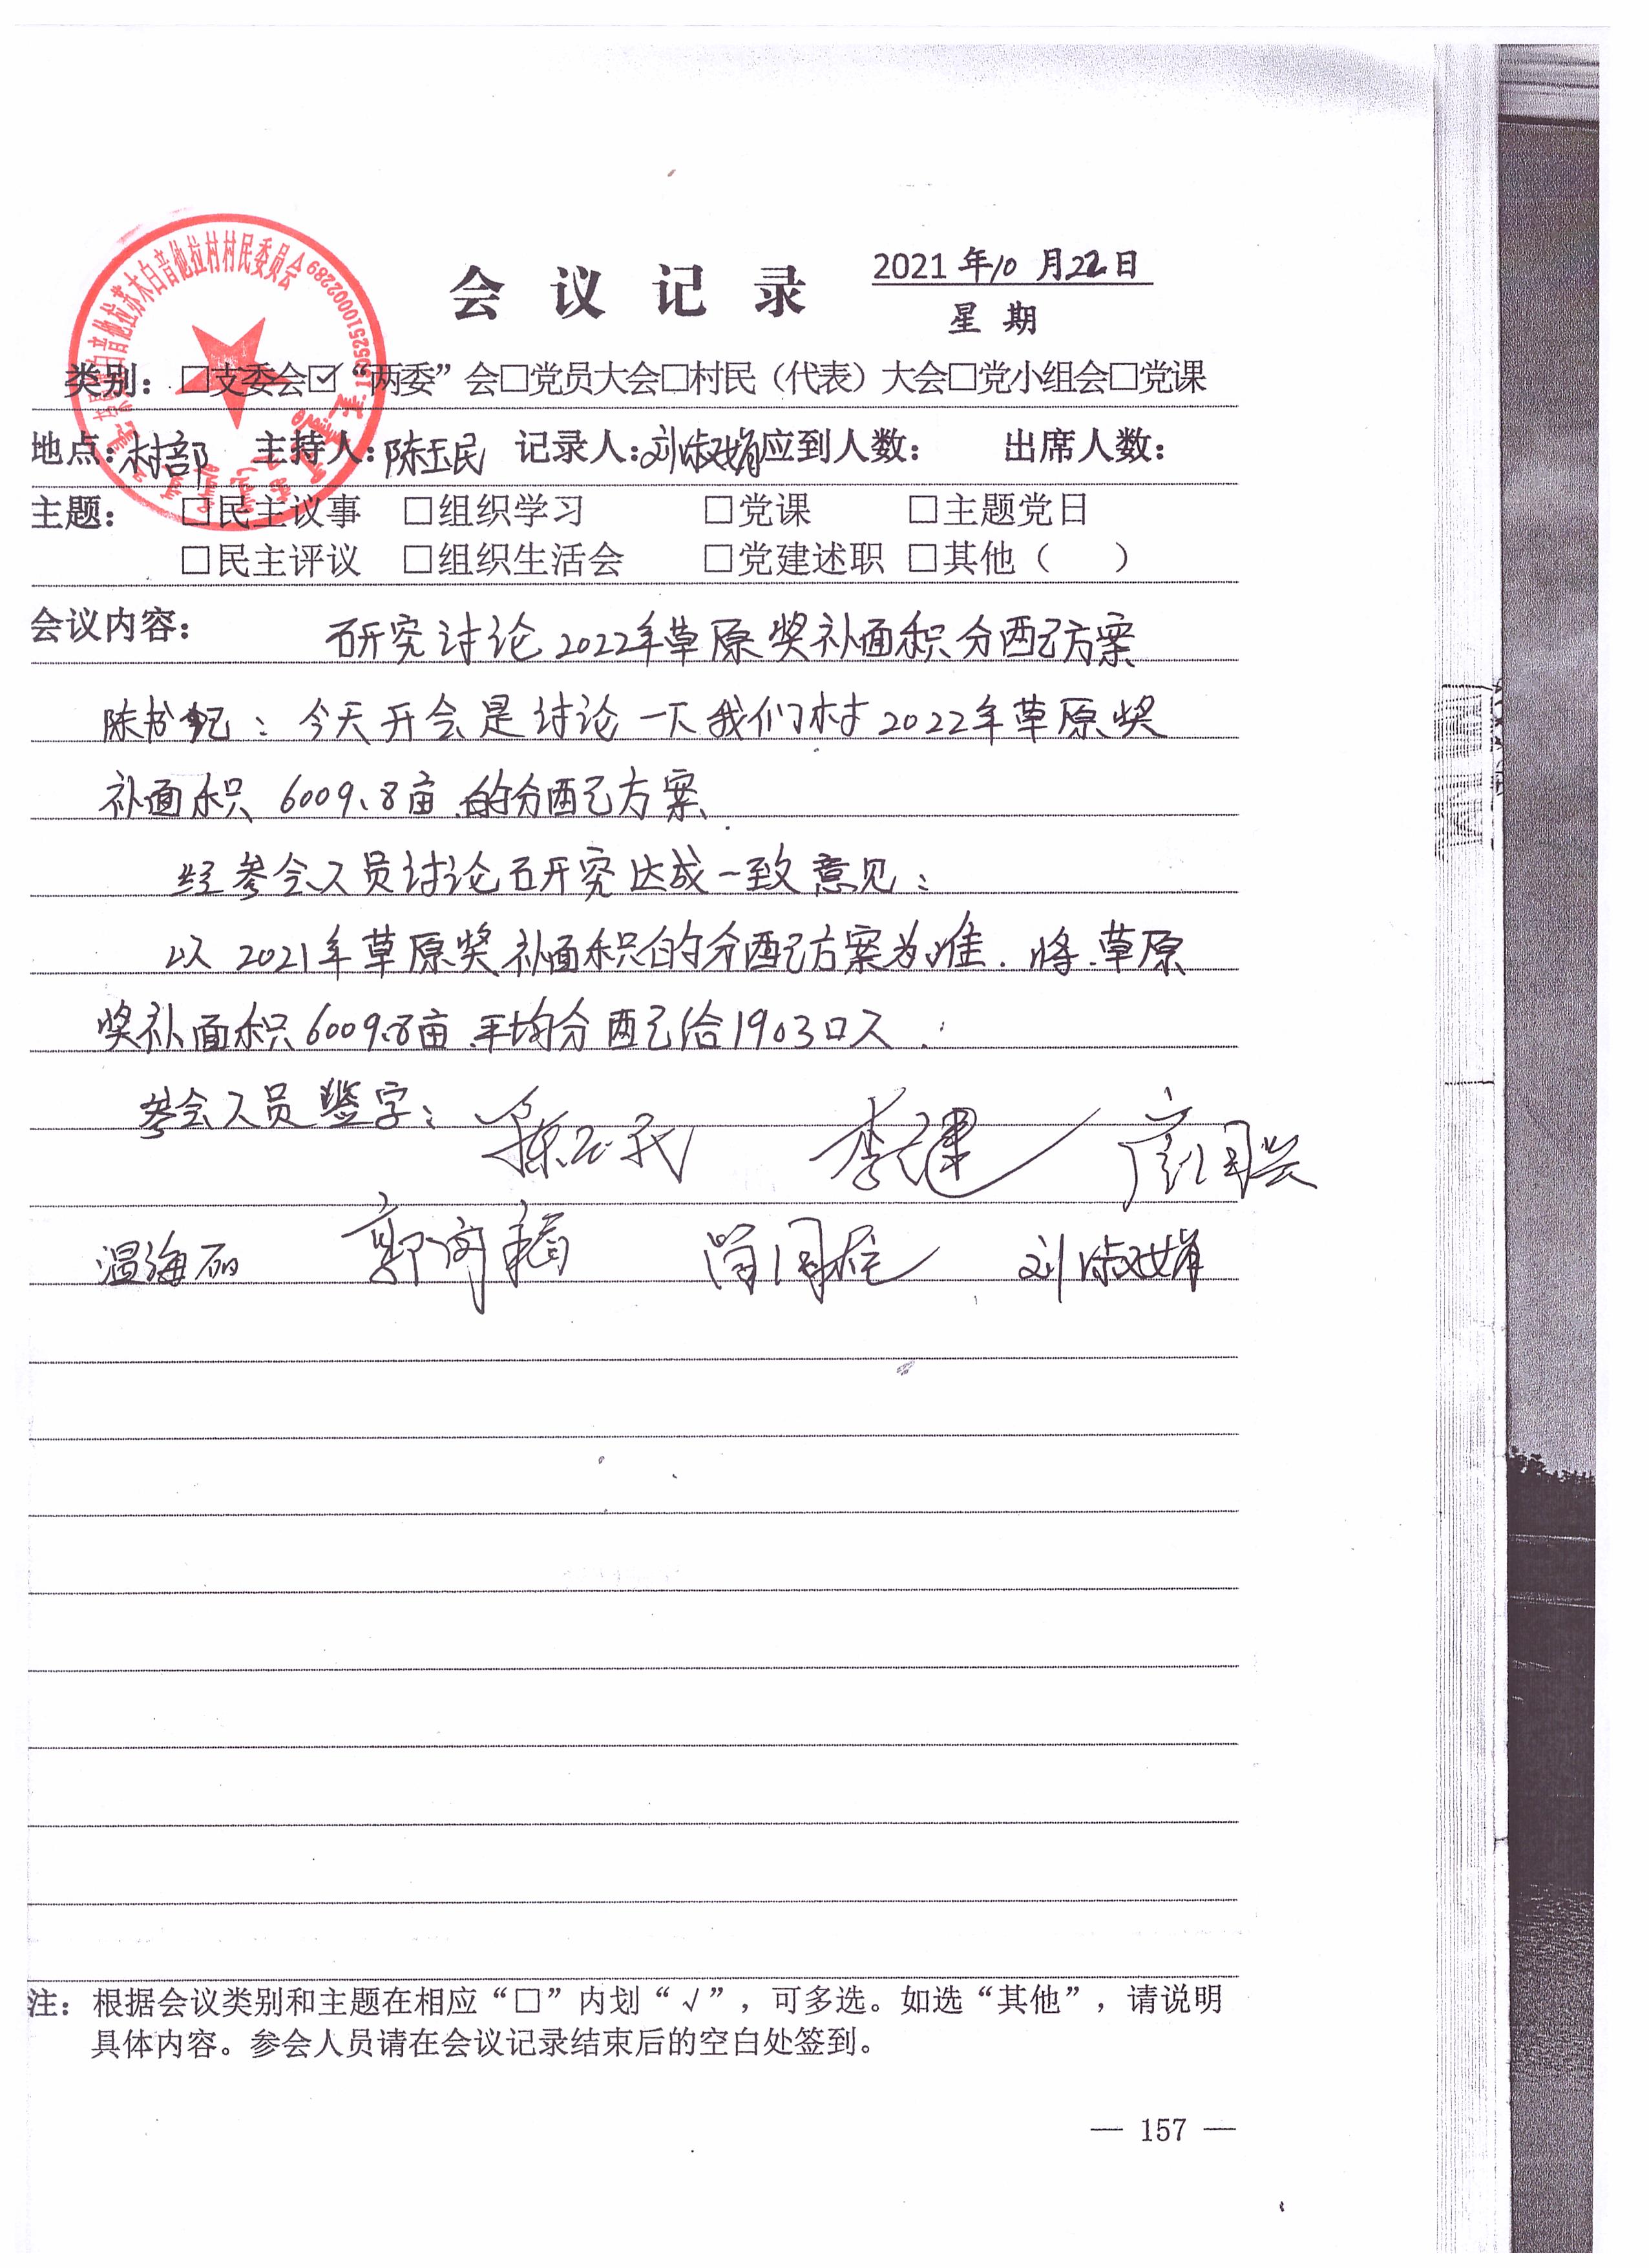 会议记录 2021年10月22日
星期
类别：□支委会☑“两委”会□党员大会□村民（代表）大会□党小组会□党课
地点：村部 主持人：陈玉民 记录人：刘淑娟 应到人数： 出席人数：
主题： □民主议事 □组织学习 □党课 □主题党日
□民主评议 □组织生活会 □党建述职 □其他（ ）
会议内容： 研究讨论2022年草原奖补面积分配方案
陈书记：今天开会是讨论一下我们村2022年草原奖
补面积 6009.8亩 的分配方案、
经参会人员讨论研究达成一致意见：
以2021年草原奖补面积的分配方案为准．将草原
奖补面积6009.8亩 平均分配给1903口人．
参会人员签字： 陈玉民 李建 国兴
温海丽 郭 刘淑娟
注：根据会议类别和主题在相应“□”内划“√”，可多选。如选“其他”，请说明
具体内容。参会人员请在会议记录结束后的空白处签到。
— 157 —
白音他拉苏木白音他拉村村民委员会